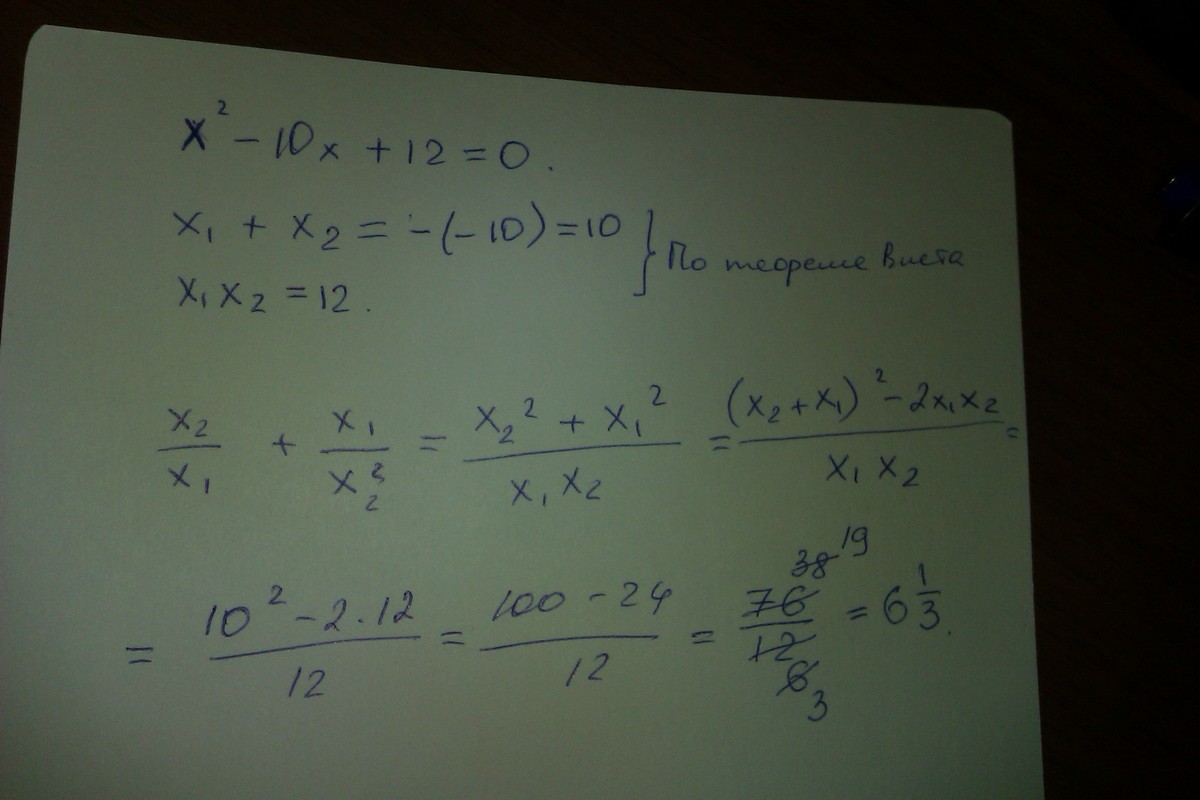 x² - 10x + 12 = 0.
x₁ + x₂ = -(-10) = 10
x₁x₂ = 12.
} По теореме Виета
x₂/x₁ + x₁/x₂ = (x₂² + x₁²)/(x₁x₂) = ((x₂ + x₁)² - 2x₁x₂)/(x₁x₂) =
= (10² - 2·12)/12 = (100 - 24)/12 = 76/12 38 19 6 3 = 6 1/3.